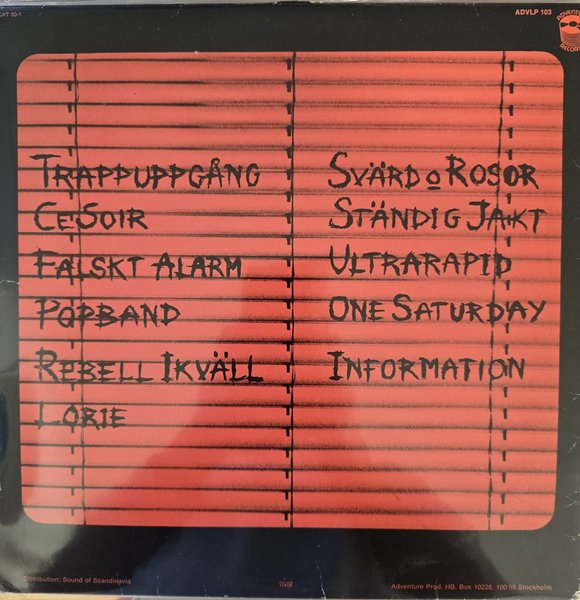 ADVLP 103
ADVENTURE
RECORDS
TRAPPUPPGÅNG
CE SOIR
FALSKT ALARM
POPBAND
REBELL IKVÄLL
LORIE
SVÄRD O ROSOR
STÄNDIG JAKT
ULTRARAPID
ONE SATURDAY
INFORMATION
Distribution: Sound of Scandinavia
Adventure Prod. HB, Box 10228, 100 55 Stockholm